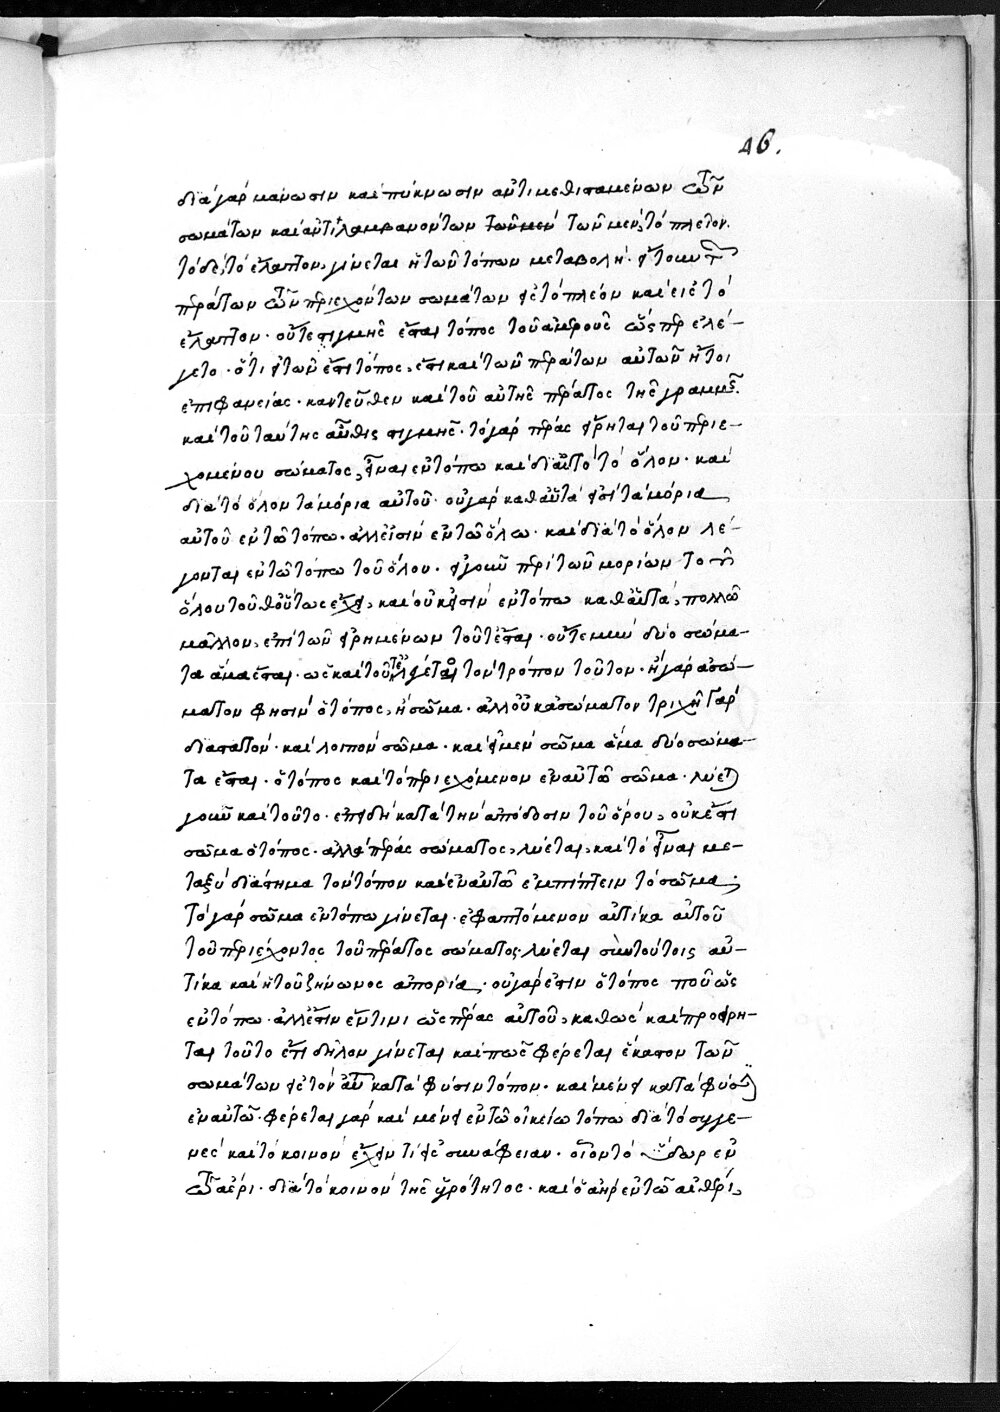 46.
διὰ γὰρ μάνωσιν καὶ πύκνωσιν ἀντιμεθισταμένων τῶν
σωμάτων καὶ ἀντιλαμβανόντων τῶν μὲν τῶν μὲν, τὸ πλεῖον.
τὸ δὲ, τὸ ἔλαττον, γίνεται ἡ τῶν τόπων μεταβολή·
περάτων τῶν περιεχόντων σωμάτων εἰς τὸ πλέον καὶ εἰς τὸ
ἔλαττον· οὔτε στιγμῆς ἔσται τόπος τοῦ ἀμεροῦς ὥσπερ ἐλέ-
γετο· ὅτι εἰ τῶν ἔστι τόπος, ἔστι καὶ τῶν περάτων αὐτῶν ἤτοι
ἐπιφανείας· κἀντεῦθεν καὶ τοῦ αὐτῆς πέρατος τῆς γραμμῆς·
καὶ τοῦ ταύτης αὖθις στιγμῆς· τὸ γὰρ πέρας εἴρηται τοῦ περιε-
χομένου σώματος, εἶναι ἐν τόπω καὶ διὰ τοῦτο τὸ ὅλον· καὶ
διὰ τὸ ὅλον τὰ μόρια αὐτοῦ· οὐ γὰρ καθ' αὑτά εἰσι τὰ μόρια
αὐτοῦ ἐν τῶ τόπω· ἀλλ' εἰσὶν ἐν τῶ ὅλω· καὶ διὰ τὸ ὅλον λέ-
γονται ἐν τῶ τόπω τοῦ ὅλου· εἰ γοῦν περὶ τῶν μορίων τοῦ
ὅλου τοῦθ' οὕτως ἔχει, καὶ οὐκ εἰσὶν ἐν τόπω καθ' αὑτά, πολλῶ
μᾶλλον, ἐπὶ τῶν εἰρημένων τοῦτ' ἔσται· οὔτε μὴν δύο σώμα-
τα ἅμα ἔσται· ὡς καὶ τοῦτ' ἐλέγετο τὸν τρόπον τοῦτον· ἢ γὰρ ἀσώ-
ματον φησὶν ὁ τόπος, ἢ σῶμα· ἀλλ' οὐκ ἀσώματον τριχῆ γὰρ
διαστατόν· καὶ λοιπὸν σῶμα· καὶ εἰ μὲν σῶμα ἅμα δύο σώμα-
τα ἔσται· ὁ τόπος καὶ τὸ περιεχόμενον ἐν αὐτῶ σῶμα· λύεται
γοῦν καὶ τοῦτο· ἐπειδὴ κατὰ τὴν ἀπόδοσιν τοῦ ὅρου, οὐκ ἔστι
σῶμα ὁ τόπος· ἀλλὰ πέρας σώματος, λύεται, καὶ τὸ εἶναι με-
ταξὺ διάστημα τὸν τόπον καὶ ἐν αὐτῶ ἐμπίπτειν τὸ σῶμα·
τὸ γὰρ σῶμα ἐν τόπω γίνεται· ἐφαπτόμενον αὐτίκα αὐτοῦ
τοῦ περιέχοντος τοῦ πέρατος σώματος· λύεται σὺν τούτοις αὐ-
τίκα καὶ ἡ τοῦ ζήνωνος ἀπορία· οὐ γάρ ἐστιν ὁ τόπος ποῦ ὡς
ἐν τόπω· ἀλλ' ἔστιν ἔν τινι ὡς πέρας αὐτοῦ, καθὼς καὶ προείρη-
ται τοῦτο ἔτι δῆλον γίνεται καὶ πῶς φέρεται ἕκαστον τῶν
σωμάτων εἰς τὸν αὐτοῦ κατὰ φύσιν τόπον· καὶ μένει κατὰ φύσιν
ἐν αὐτῶ· φέρεται γὰρ καὶ μένει ἐν τῶ οἰκείω τόπω διὰ τὸ συγγε-
νὲς καὶ τὸ κοινὸν ἔχειν τι εἰς συνάφειαν· οἷον τὸ ὕδωρ ἐν
τῶ ἀέρι· διὰ τὸ κοινὸν τῆς ὑγρότητος· καὶ ὁ ἀὴρ ἐν τῶ αἰθέρι,